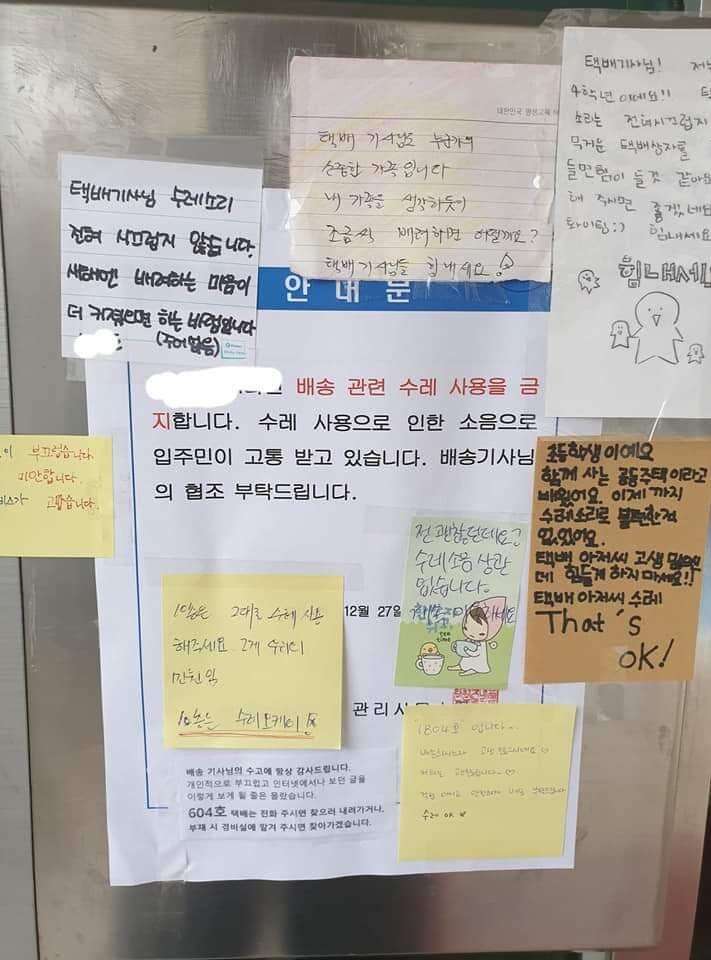 대한민국 평생교육
택배 기사님도 누군가의
소중한 가족입니다
내 가족을 생각하듯이
조금씩 배려하면 어떨까요?
택배기사님들 힘내세요
택배기사님!
4학년이에요!!
소리는 전혀시끄럽지
무거운 택배상자를
들면힘이 들것 같아요
해 주시면 좋겠네요
화이팅:) 힘내세요
힘내세요
택배기사님 수레소리
전혀 시끄럽지 않습니다.
새해엔 배려하는 마음이
더 커졌으면 하는 바램입니다
(주어없음)
안 내 문
배송 관련 수레 사용을 금
지합니다. 수레 사용으로 인한 소음으로
입주민이 고통 받고 있습니다. 배송기사님
의 협조 부탁드립니다.
부끄럽습니다
미안합니다.
고맙습니다.
전 괜찮던데요?
수레소음 상관
없습니다.
tea time
초등학생이에요
함께 사는 공동주택이라고
배웠어요. 이제까지
수레소리로 불편한적
없었어요.
택배 아저씨 고생 많으신
데 힘들게 하지마세요!!
택배 아저씨 수레
That's
OK!
그대로 수레 사용
해주세요.
수레오케이
12월 27일
관리사무소
1804호 입니다
수레 OK
배송 기사님의 수고에 항상 감사드립니다.
개인적으로 부끄럽고 인터넷에서나 보던 글을
이렇게 보게 될 줄은 몰랐습니다.
604호 택배는 전화 주시면 찾으러 내려가거나,
부재 시 경비실에 맡겨 주시면 찾아가겠습니다.